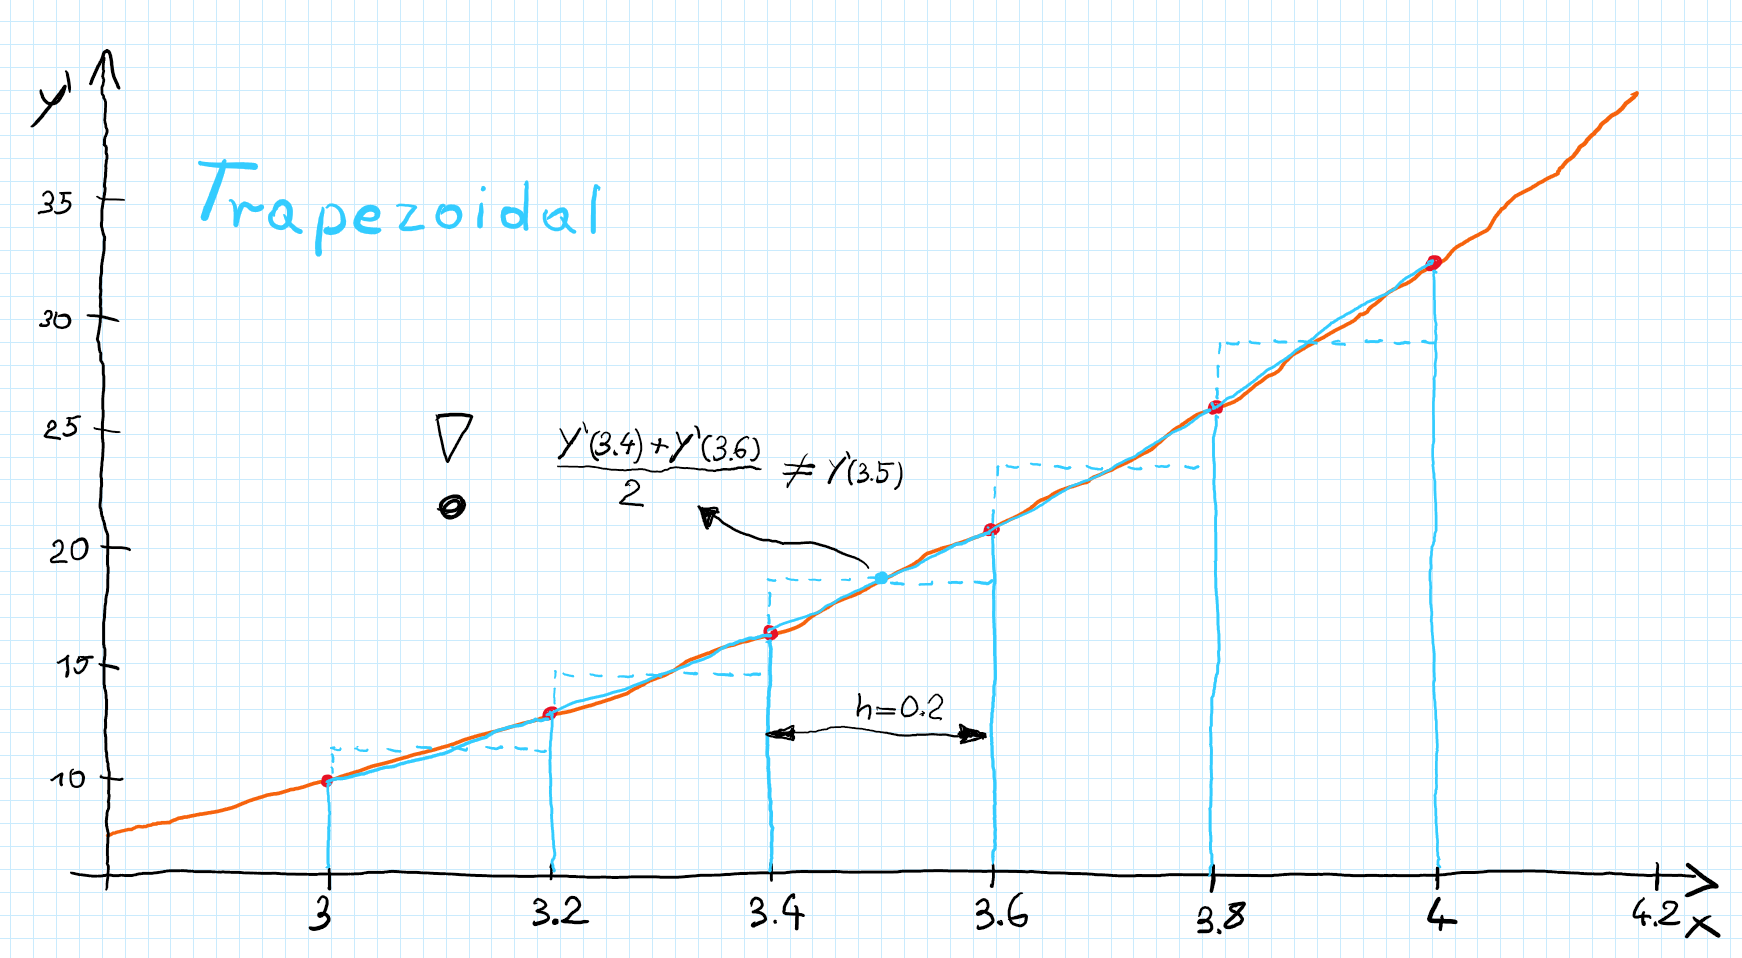 y'
Trapezoidal
35
30
25
20
15
10
y'(3.4)+y'(3.6)
2
≠ y'(3.5)
h=0.2
3 3.2 3.4 3.6 3.8 4 4.2
x